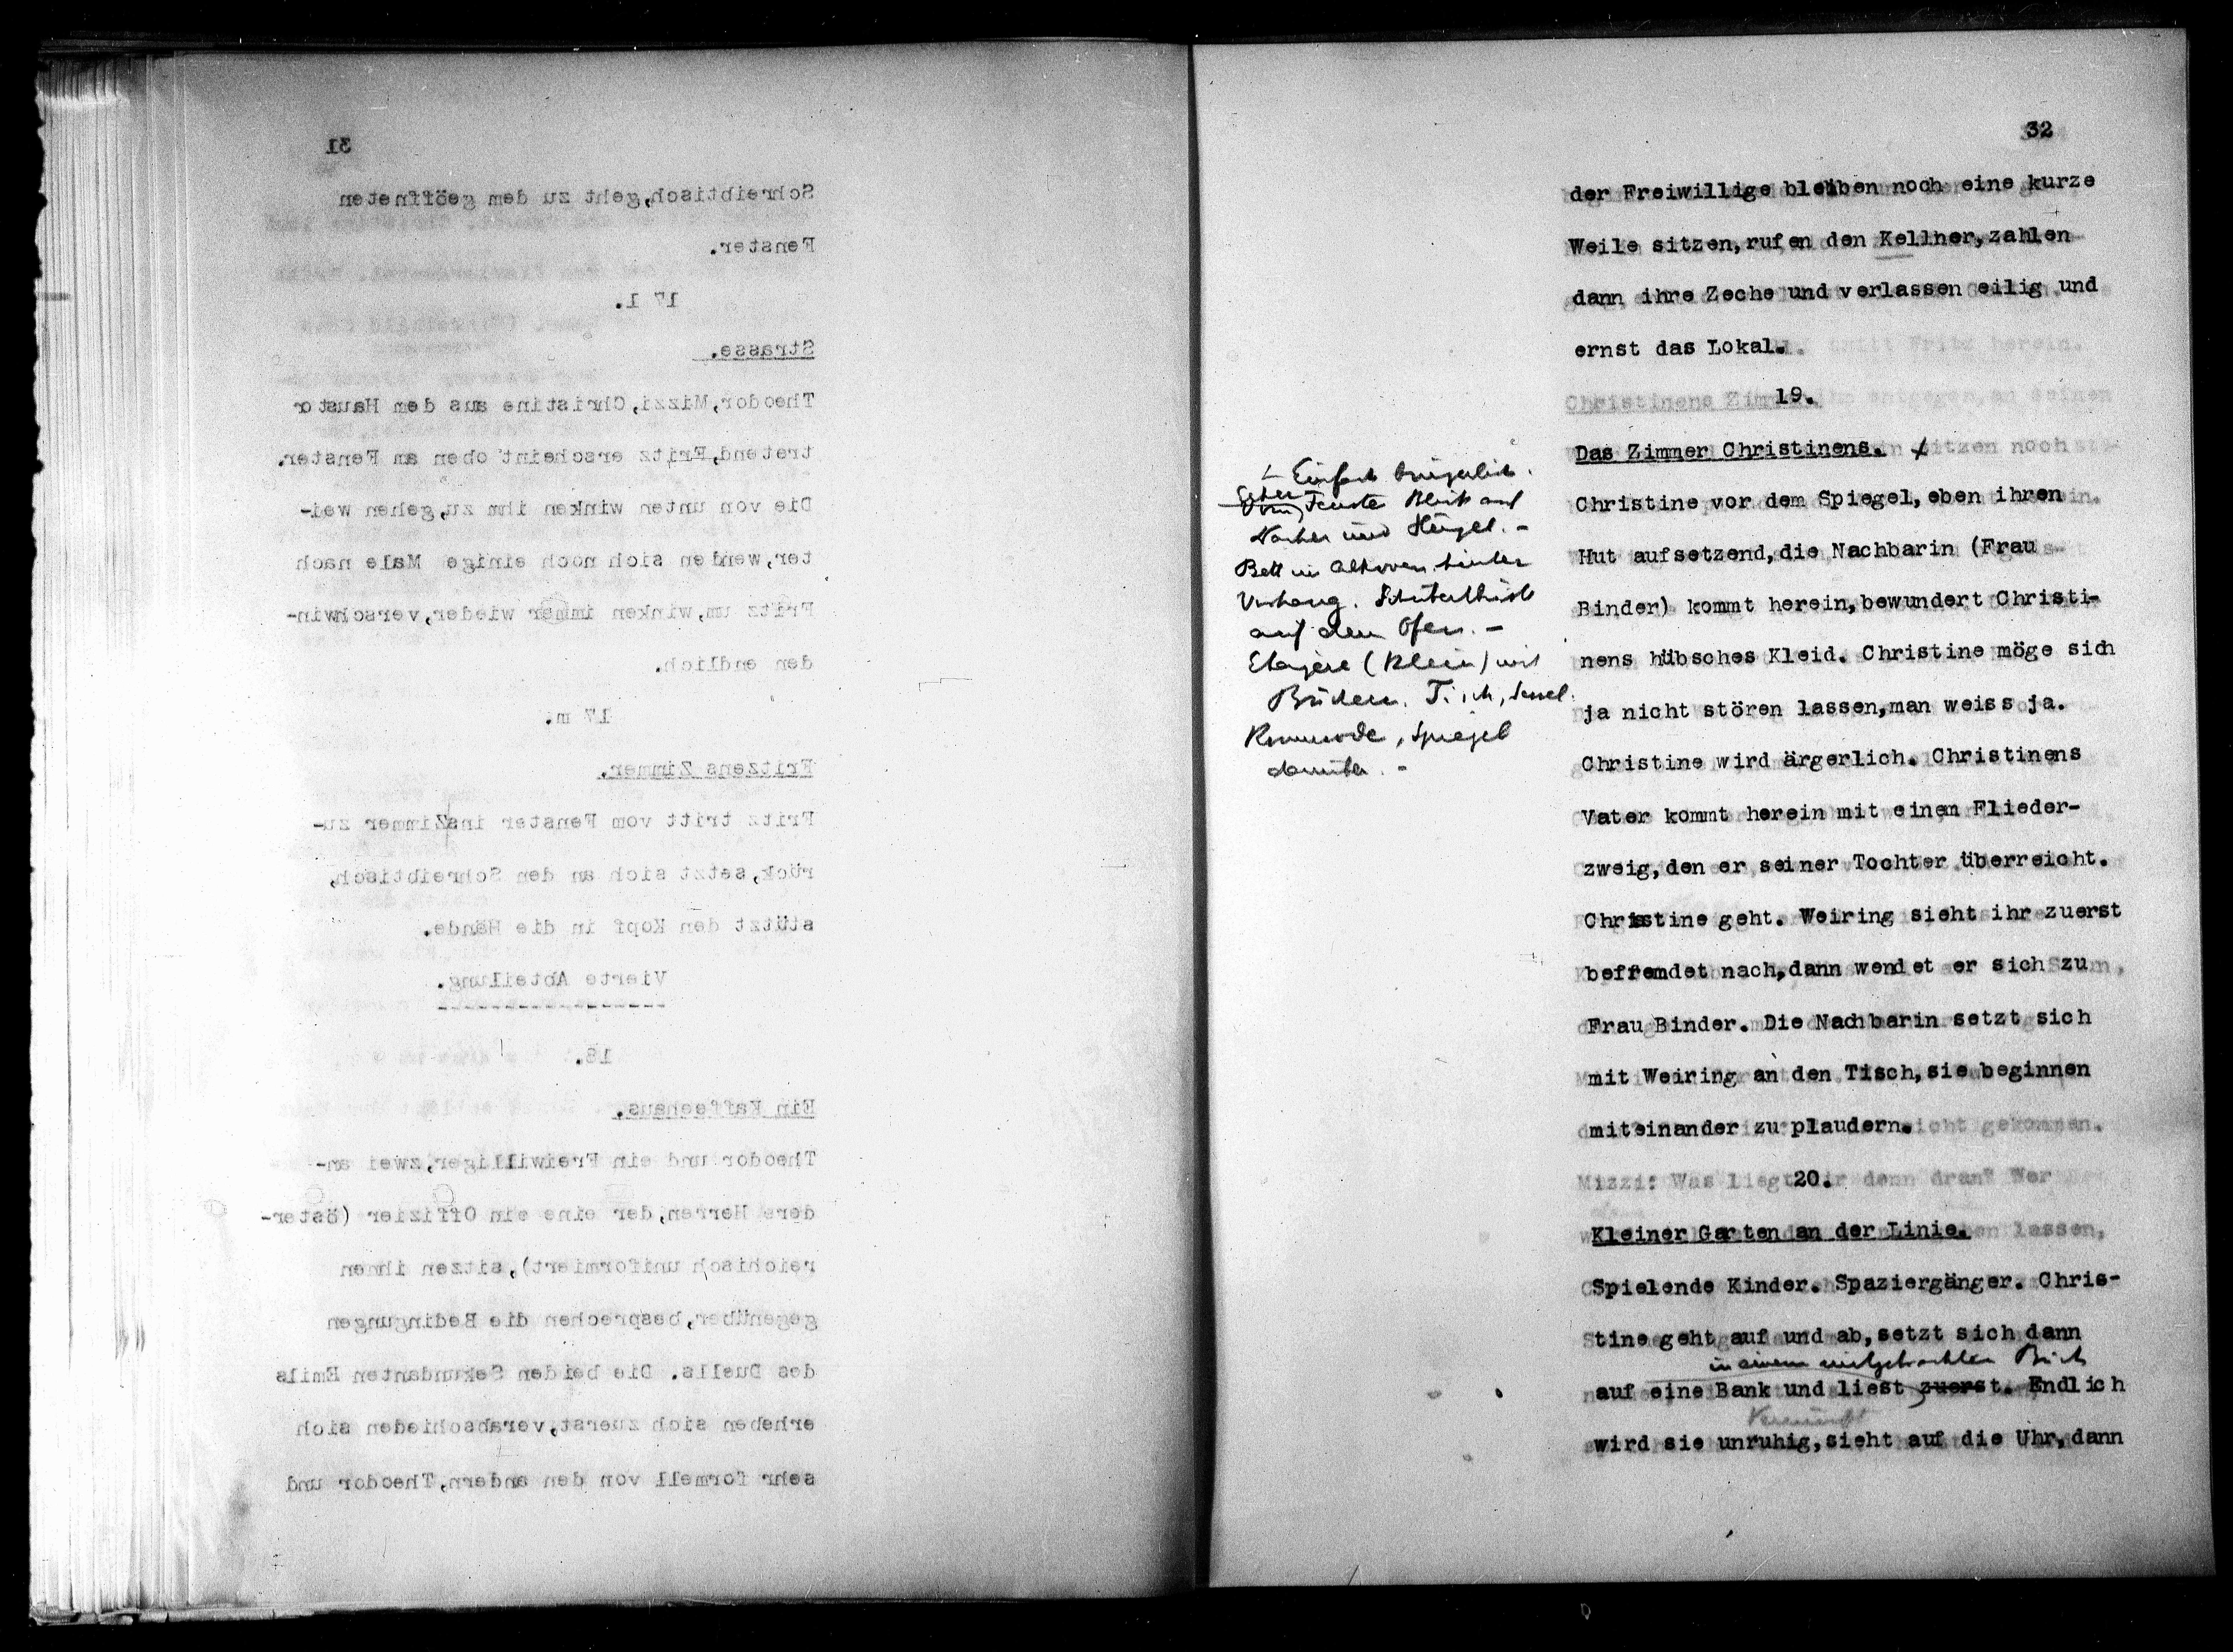 31
Schreibtisch,geht zu dem geöffneten
Fenster.
17 l.
Strasse.
Theodor,Mizzi,Christine aus dem Haustor
tretend,Fritz erscheint oben am Fenster.
Die von unten winken ihm zu,gehen wei-
ter,wenden sich noch einige Male nach
Fritz um,winken immer wieder,verschwin-
den endlich.
17 m.
Fritzens Zimmer.
Fritz tritt vom Fenster ins Zimmer zu-
rück,setzt sich an den Schreibtisch,
stützt den Kopf in die Hände.
Vierte Abteilung.
------------------
18.
Ein Kaffeehaus.
Theodor und ein Freiwilliger,zwei an-
dere Herren,der eine ein Offizier (öster-
reichisch uniformiert),sitzen ihnen
gegenüber,besprechen die Bedingungen
des Duells. Die beiden Sekundanten Emils
erheben sich zuerst,verabschieden sich
sehr formell von den andern,Theodor und
32
der Freiwillige bleiben noch eine kurze
Weile sitzen,rufen den Kellner,zahlen
dann ihre Zeche und verlassen eilig und
ernst das Lokal.
19.
Das Zimmer Christinens. +
Einfach bürgerlich.
Fenster Blick auf
und Hügel. -
Bett in Alkoven hinter
Vorhang. Schubertbüste
auf dem Ofen. -
Etagère (klein) mit
Büchern. Tisch, Sessel.
Kommode, Spiegel
darüber. -
Christine vor dem Spiegel,eben ihren
Hut aufsetzend,die Nachbarin (Frau
Binder) kommt herein,bewundert Christi-
nens hübsches Kleid. Christine möge sich
ja nicht stören lassen,man weiss ja.
Christine wird ärgerlich. Christinens
Vater kommt herein mit einem Flieder-
zweig,den er seiner Tochter überreicht.
Christine geht. Weiring sieht ihr zuerst
befremdet nach,dann wendet er sich zu
Frau Binder. Die Nachbarin setzt sich
mit Weiring an den Tisch,sie beginnen
miteinander zu plaudern.
20.
Kleiner Garten an der Linie.
Spielende Kinder. Spaziergänger. Chris-
tine geht auf und ab,setzt sich dann
in einem mitgebrachten Buch
auf eine Bank und liest zuerst. Endlich
wird sie unruhig,sieht auf die Uhr,dann